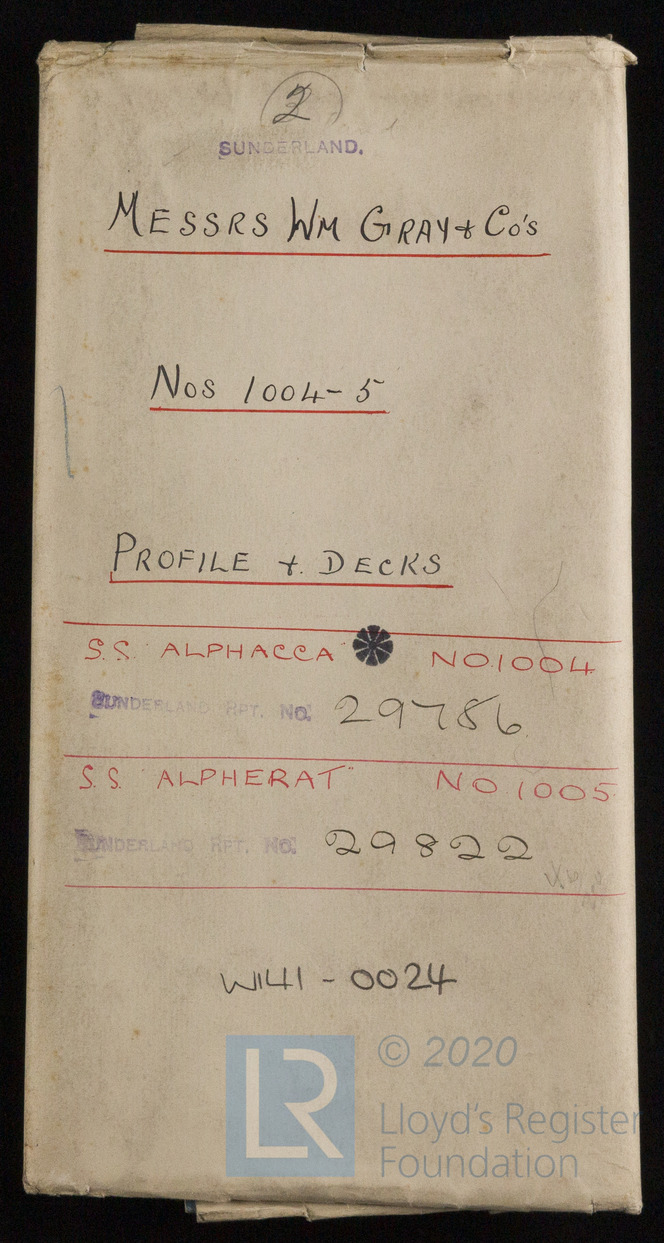 2
SUNDERLAND.
MESSRS WM GRAY & Co's
Nos 1004-5
PROFILE & DECKS
S.S. "ALPHACCA" NO.1004
SUNDERLAND RPT. No. 29786
S.S. "ALPHERAT" NO.1005
SUNDERLAND RPT. No. 29822
W141 - 0024
LR
© 2020
Lloyd's Register
Foundation